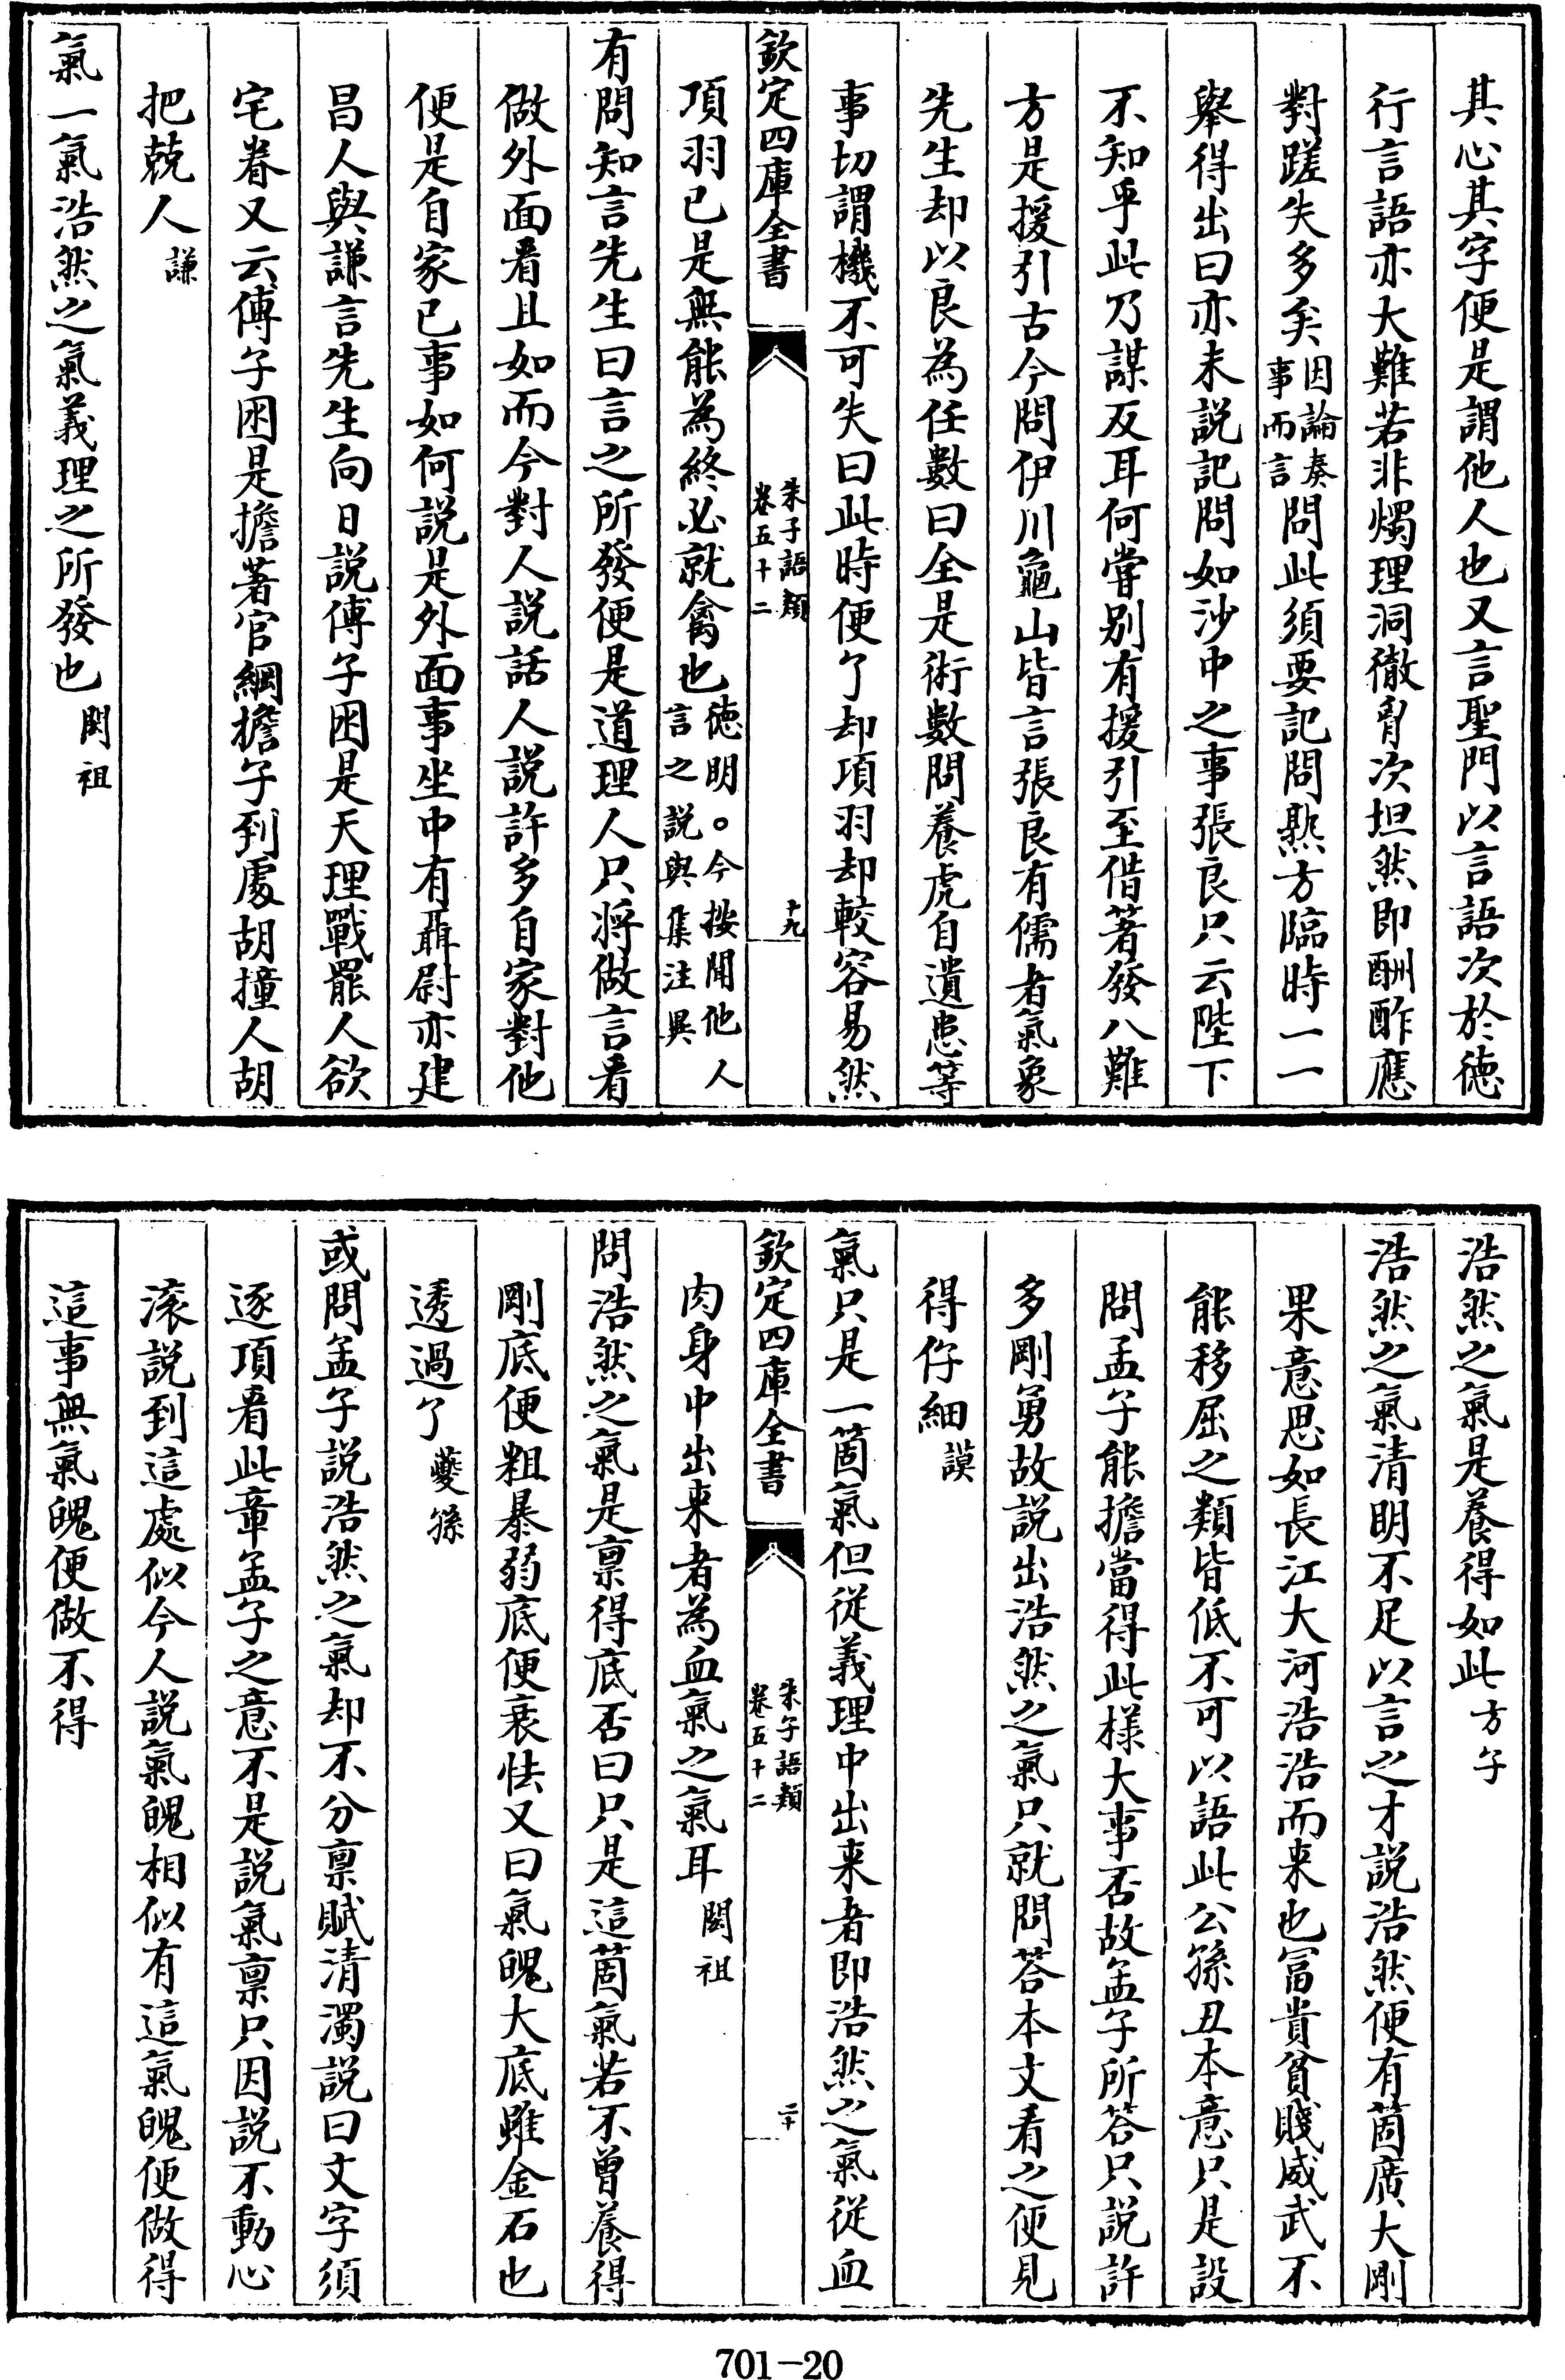 其心其字便是謂他人也又言聖門以言語次於徳
行言語亦大難若非燭理洞徹胷次坦然即酬酢應
對蹉失多矣因論奏事而言問此須要記問熟方臨時一一
舉得出曰亦未説記問如沙中之事張良只云陛下
不知乎此乃謀反耳何嘗别有援引至借著發八難
方是援引古今問伊川龜山皆言張良有儒者氣象
先生却以良為任數曰全是術數問養虎自遺患等
事切謂機不可失曰此時便了却項羽却較容易然
欽定四庫全書
朱子語類
卷五十二
十九
項羽已是無能為終必就禽也徳明。今按聞他人言之説與集注異
有問知言先生曰言之所發便是道理人只將做言看
做外面看且如而今對人説話人説許多自家對他
便是自家已事如何説是外面事坐中有聶尉亦建
昌人與謙言先生向日説傅子困是天理戰罷人欲
宅眷又云傅子困是擔著官綱擔子到處胡撞人胡
把兢人謙
氣一氣浩然之氣義理之所發也閎祖
浩然之氣是養得如此方子
浩然之氣清明不足以言之才説浩然便有箇廣大剛
果意思如長江大河浩浩而来也富貴貧賤威武不
能移屈之類皆低不可以語此公孫丑本意只是設
問孟子能擔當得此様大事否故孟子所答只説許
多剛勇故説出浩然之氣只就問答本文看之便見
得仔細謨
氣只是一箇氣但從義理中出来者即浩然之氣從血
欽定四庫全書
朱子語類
卷五十二
二十
肉身中出来者為血氣之氣耳閎祖
問浩然之氣是稟得底否曰只是這箇氣若不曾養得
剛底便粗暴弱底便衰怯又曰氣魄大底雖金石也
透過了夔孫
或問孟子説浩然之氣却不分稟賦清濁説曰文字須
逐項看此章孟子之意不是説氣稟只因説不動心
滚説到這處似今人説氣魄相似有這氣魄便做得
這事無氣魄便做不得
701-20